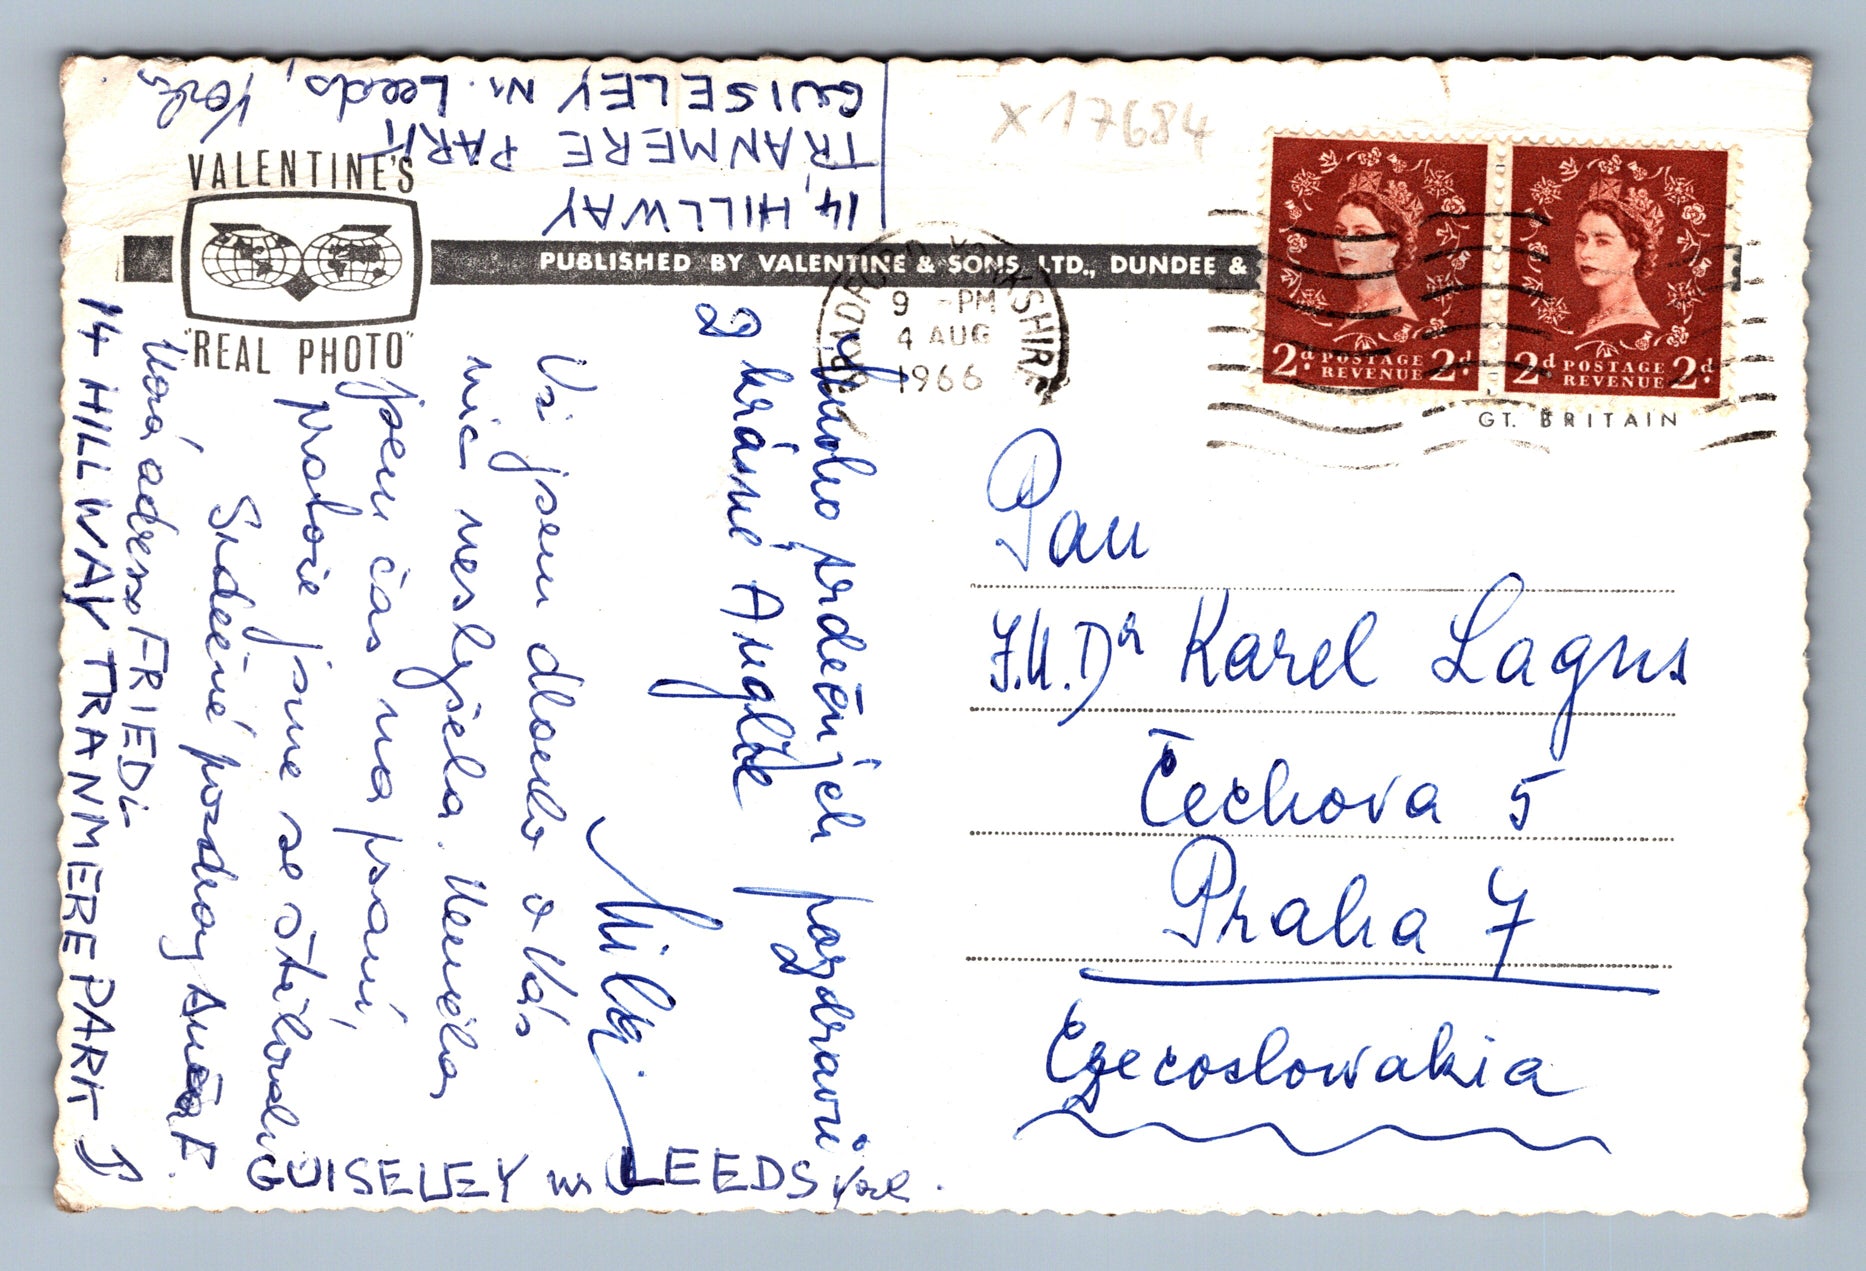 14, HILLWAY
TRANMERE PARK
GUISELEY Nr. Leeds, Yorks
x 17684
VALENTINE'S
"REAL PHOTO"
PUBLISHED BY VALENTINE & SONS, LTD., DUNDEE &
BRADFORD YORKSHIRE
9 -PM
4 AUG
1966
2d POSTAGE REVENUE 2d
2d POSTAGE REVENUE 2d
GT. BRITAIN
Mnoho srdečných pozdravů
z krásné Anglie
Milky
Už jsem dlouho o Vás
nic neslyšela. Neměla
jsem čas na psaní,
protože jsme se stěhovali
Srdečné pozdravy
Nová adresa FRIEDL
14 HILLWAY TRANMERE PARK
GUISELEY nr LEEDS York.
Pan
J.U.Dr Karel Lagus
Čechova 5
Praha 7
Czecoslowakia